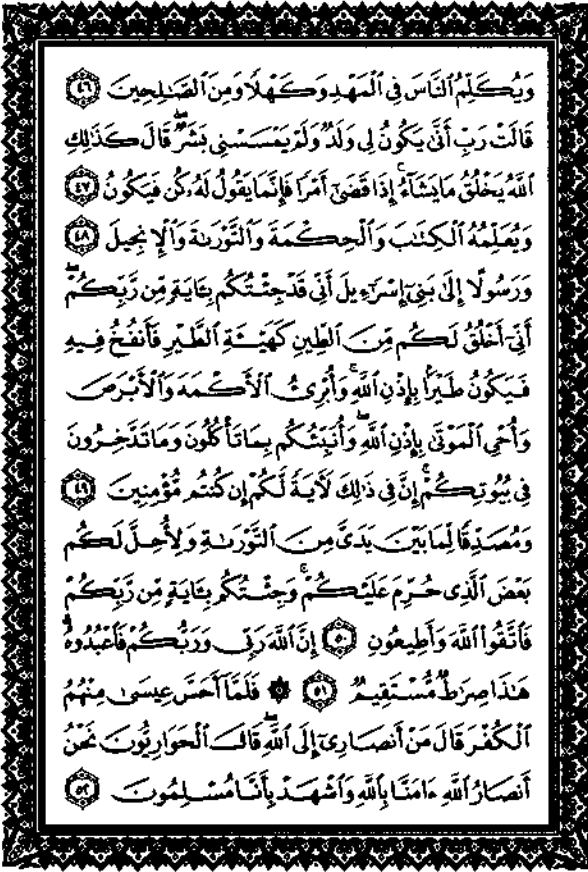 وَيُكَلِّمُ ٱلنَّاسَ فِي ٱلْمَهْدِ وَكَهْلًا وَمِنَ ٱلصَّٰلِحِينَ ٤٦
قَالَتْ رَبِّ أَنَّىٰ يَكُونُ لِي وَلَدٌ وَلَمْ يَمْسَسْنِي بَشَرٌۖ قَالَ كَذَٰلِكِ
ٱللَّهُ يَخْلُقُ مَا يَشَآءُۚ إِذَا قَضَىٰٓ أَمْرًا فَإِنَّمَا يَقُولُ لَهُۥ كُن فَيَكُونُ ٤٧
وَيُعَلِّمُهُ ٱلْكِتَٰبَ وَٱلْحِكْمَةَ وَٱلتَّوْرَىٰةَ وَٱلْإِنجِيلَ ٤٨
وَرَسُولًا إِلَىٰ بَنِيٓ إِسْرَٰٓءِيلَ أَنِّي قَدْ جِئْتُكُم بِـَٔايَةٍ مِّن رَّبِّكُمْۖ
أَنِّيٓ أَخْلُقُ لَكُم مِّنَ ٱلطِّينِ كَهَيْـَٔةِ ٱلطَّيْرِ فَأَنفُخُ فِيهِ
فَيَكُونُ طَيْرًۢا بِإِذْنِ ٱللَّهِۖ وَأُبْرِئُ ٱلْأَكْمَهَ وَٱلْأَبْرَصَ
وَأُحْيِ ٱلْمَوْتَىٰ بِإِذْنِ ٱللَّهِۖ وَأُنَبِّئُكُم بِمَا تَأْكُلُونَ وَمَا تَدَّخِرُونَ
فِي بُيُوتِكُمْۚ إِنَّ فِي ذَٰلِكَ لَءَايَةً لَّكُمْ إِن كُنتُم مُّؤْمِنِينَ ٤٩
وَمُصَدِّقًا لِّمَا بَيْنَ يَدَيَّ مِنَ ٱلتَّوْرَىٰةِ وَلِأُحِلَّ لَكُم
بَعْضَ ٱلَّذِي حُرِّمَ عَلَيْكُمْۚ وَجِئْتُكُم بِـَٔايَةٍ مِّن رَّبِّكُمْ
فَٱتَّقُوا۟ ٱللَّهَ وَأَطِيعُونِ ٥٠ إِنَّ ٱللَّهَ رَبِّي وَرَبُّكُمْ فَٱعْبُدُوهُۗ
هَٰذَا صِرَٰطٌ مُّسْتَقِيمٌ ٥١ ۞ فَلَمَّآ أَحَسَّ عِيسَىٰ مِنْهُمُ
ٱلْكُفْرَ قَالَ مَنْ أَنصَارِيٓ إِلَى ٱللَّهِۖ قَالَ ٱلْحَوَارِيُّونَ نَحْنُ
أَنصَارُ ٱللَّهِ ءَامَنَّا بِٱللَّهِ وَٱشْهَدْ بِأَنَّا مُسْلِمُونَ ٥٢